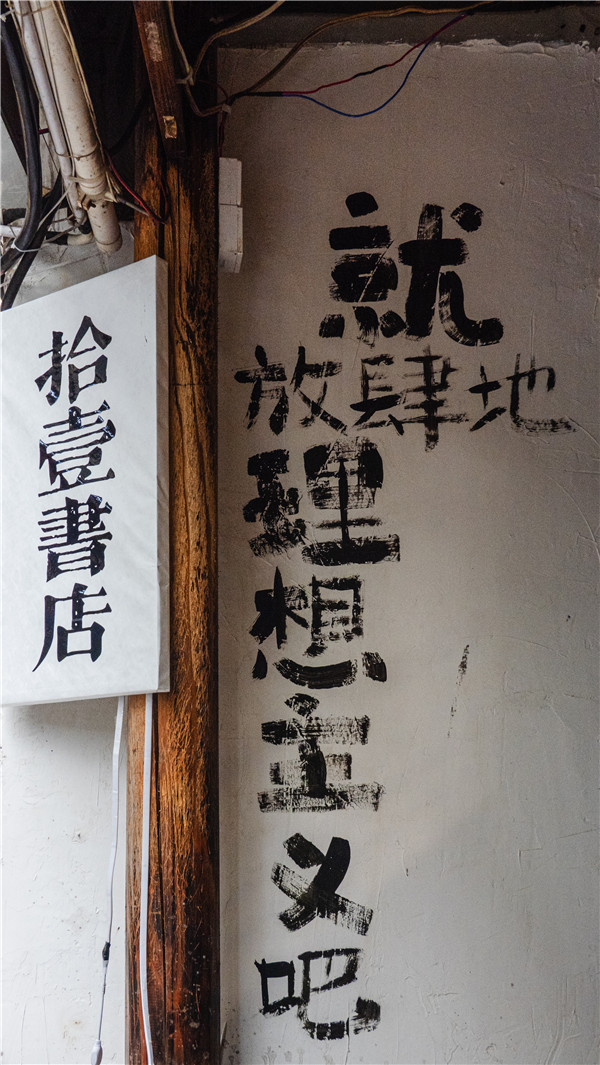 拾壹書店
就
放肆地
理想主义吧